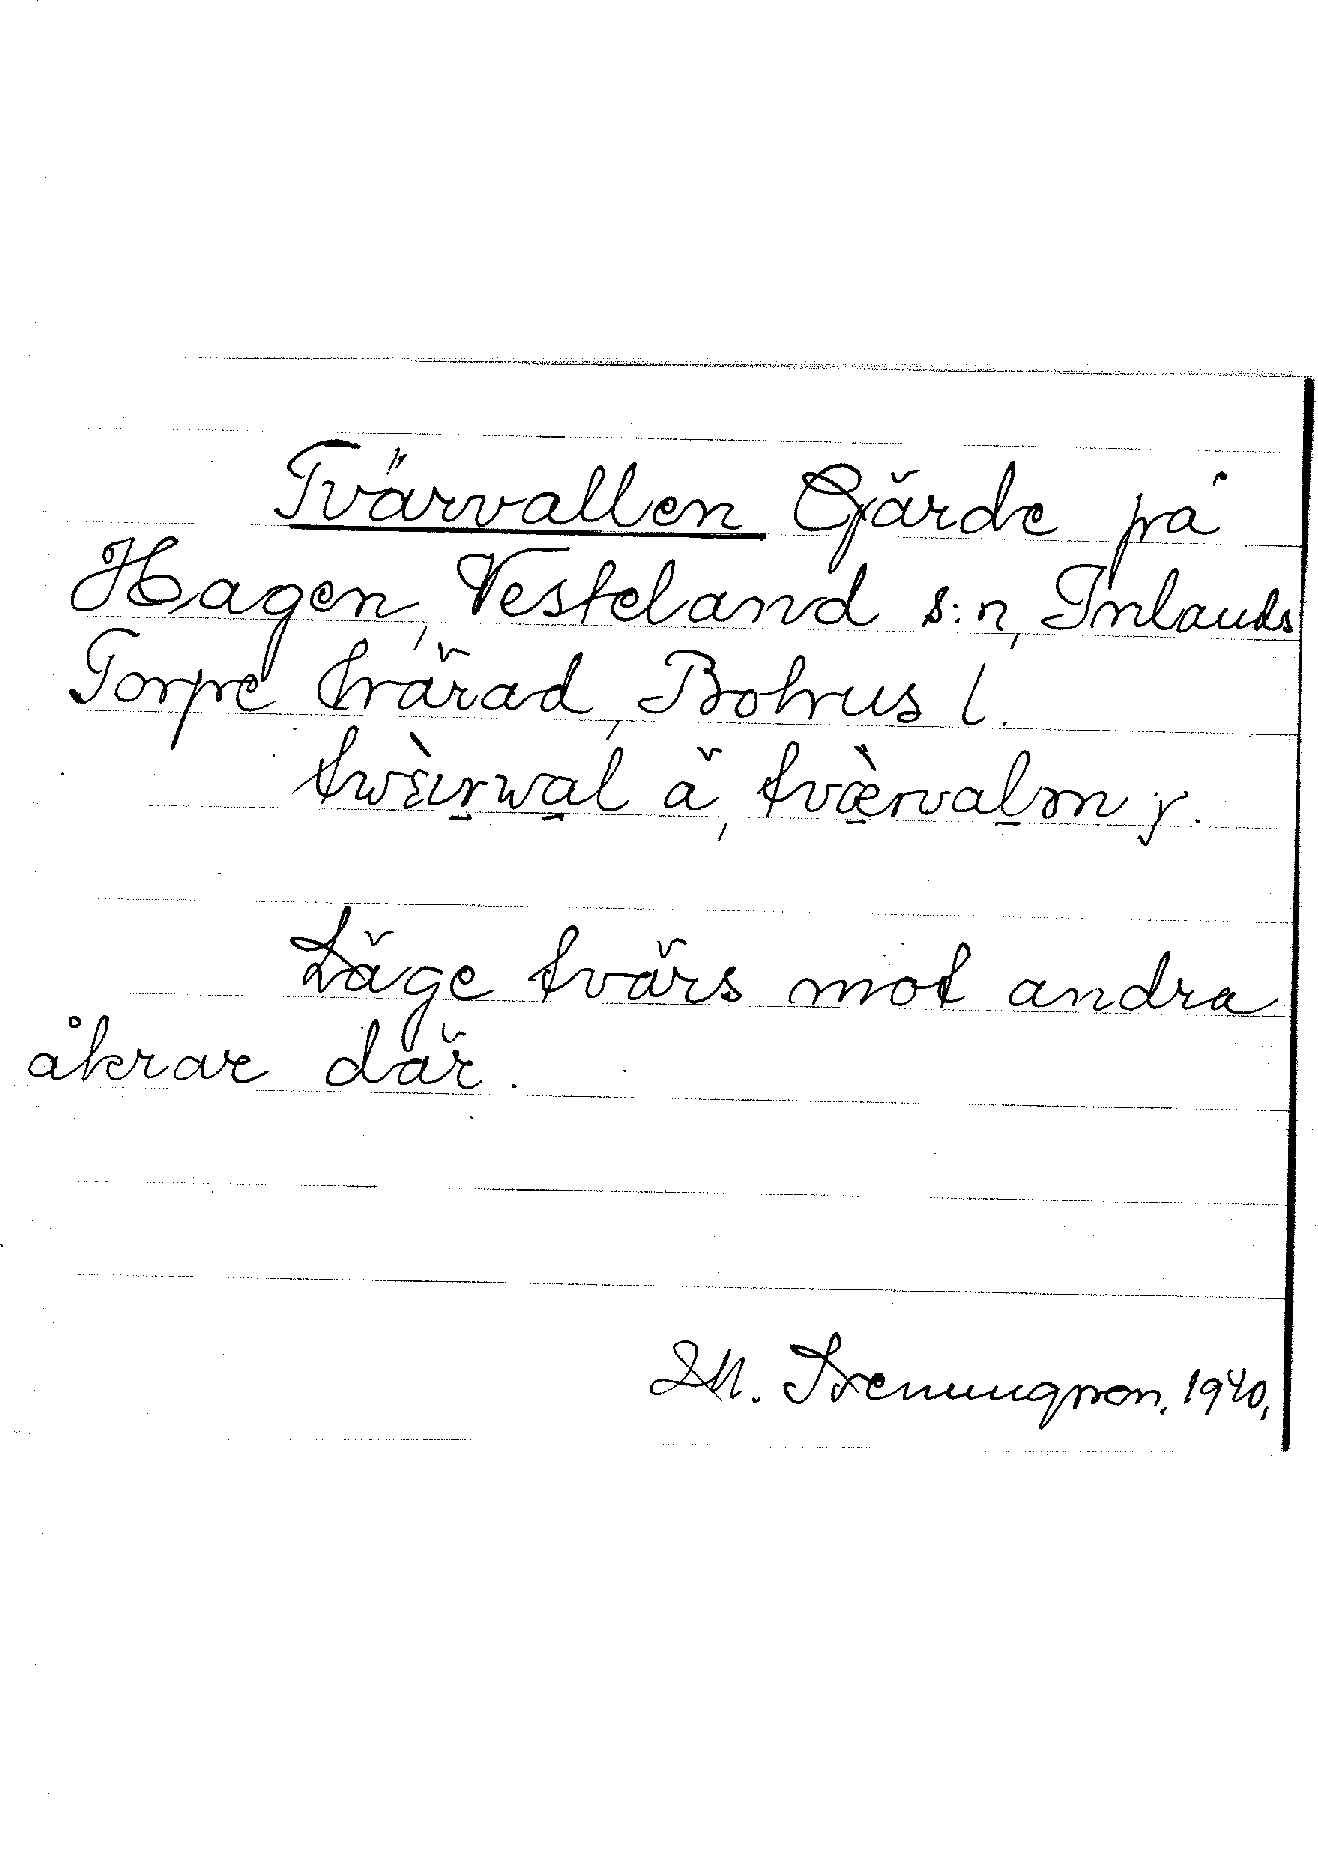 Tvärvallen Gärde på
Hagen, Vesteland s:n, Inlands
Torpe härad, Bohus l.
twèırwal ä, tvæ̀rvalm y.
Läge tvärs mot andra
åkrar där.
1940.